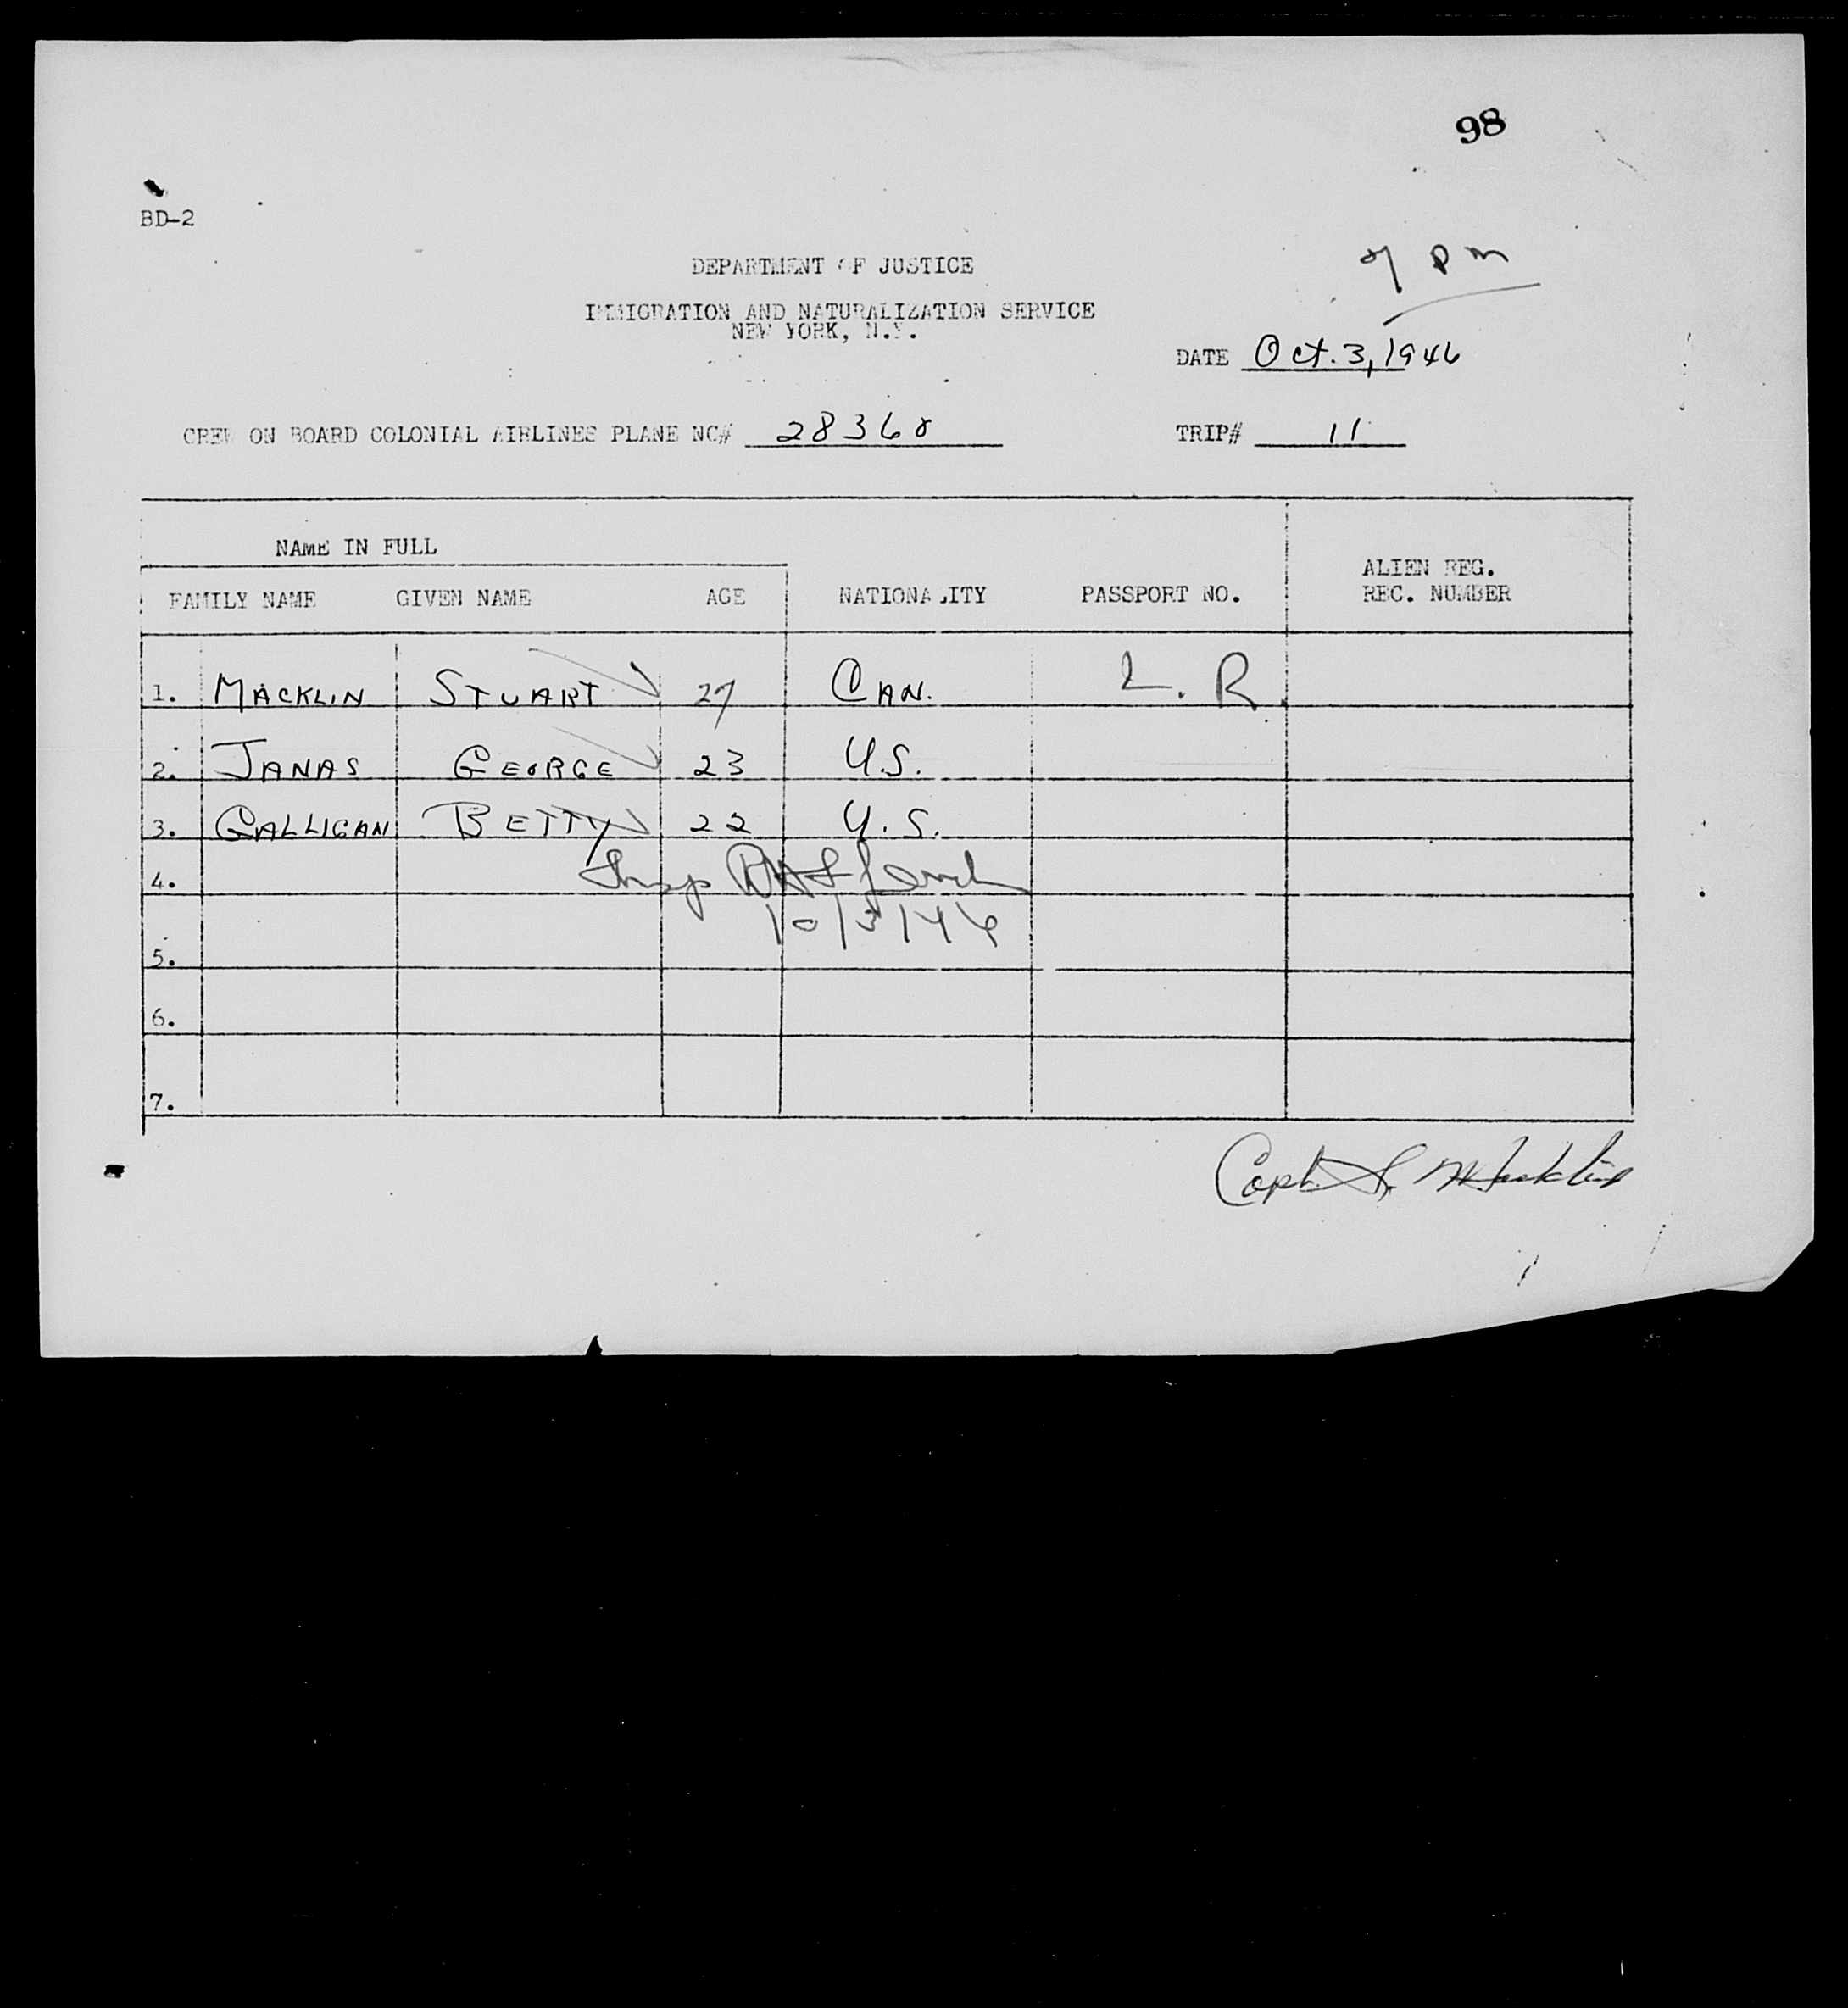 98
BD-2
7 PM
DEPARTMENT OF JUSTICE
IMMIGRATION AND NATURALIZATION SERVICE
NEW YORK, N.Y.
DATE Oct. 3, 1946
CREW ON BOARD COLONIAL AIRLINES PLANE NC# 28368 TRIP# 11
NAME IN FULL
FAMILY NAME GIVEN NAME AGE NATIONALITY PASSPORT NO. ALIEN REG. REC. NUMBER
1. MACKLIN STUART 27 CAN. L. R.
2. JANAS GEORGE 23 U.S.
3. GALLIGAN BETTY 22 U.S.
4. Insp
10/3/46
5.
6.
7.
Capt. S. Macklin